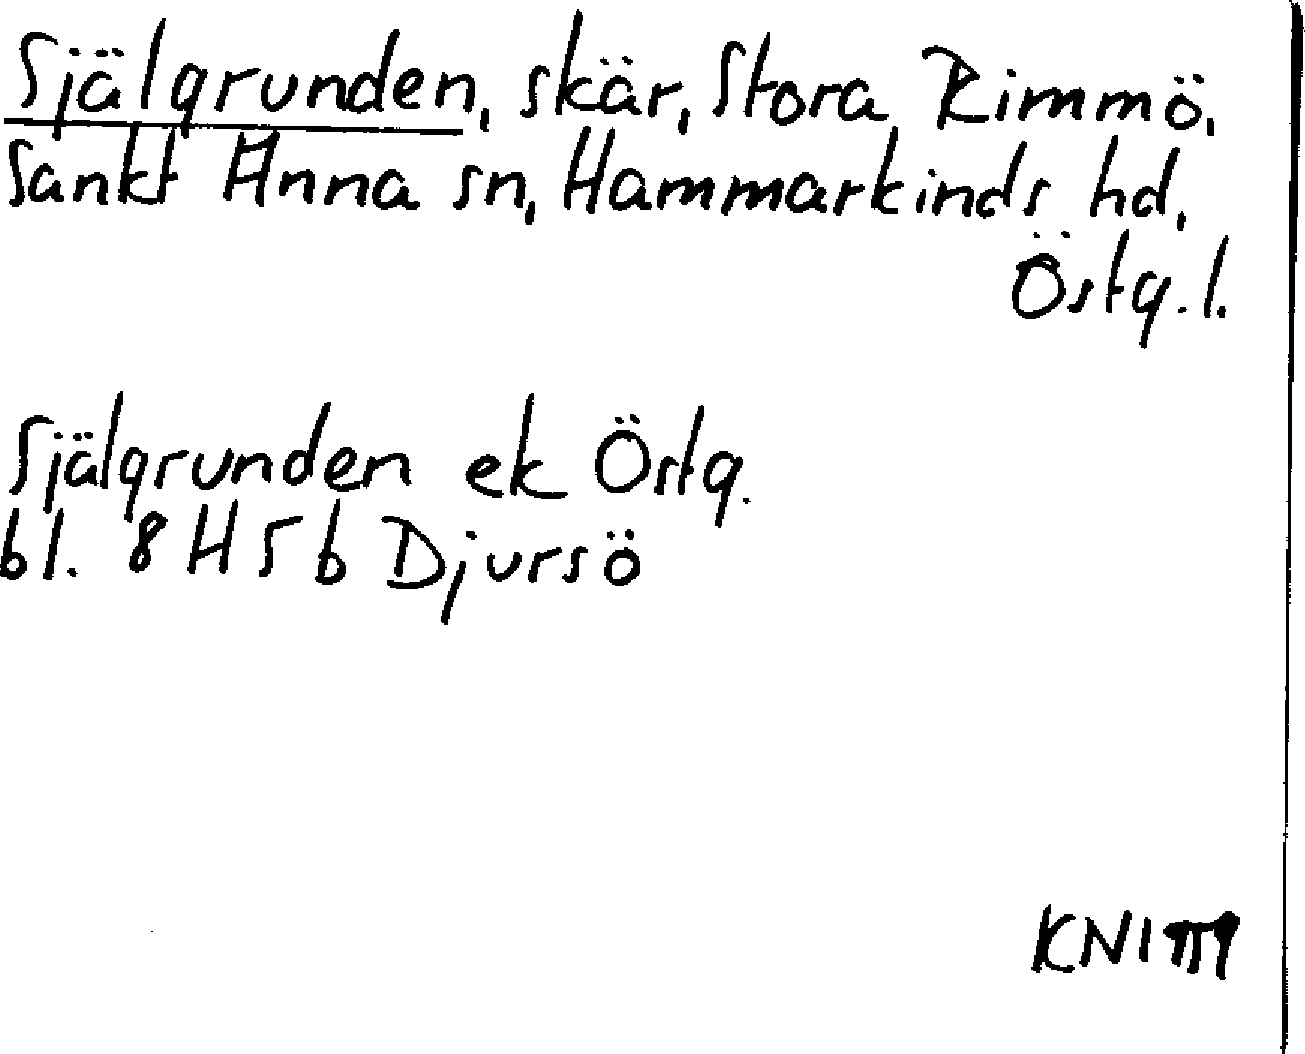 Själgrunden, skär, Stora Rimmö,
Sankt Anna sn, Hammarkinds hd,
Östg. l.
Själgrunden ek Östg.
bl. 8 H 5 b Djursö